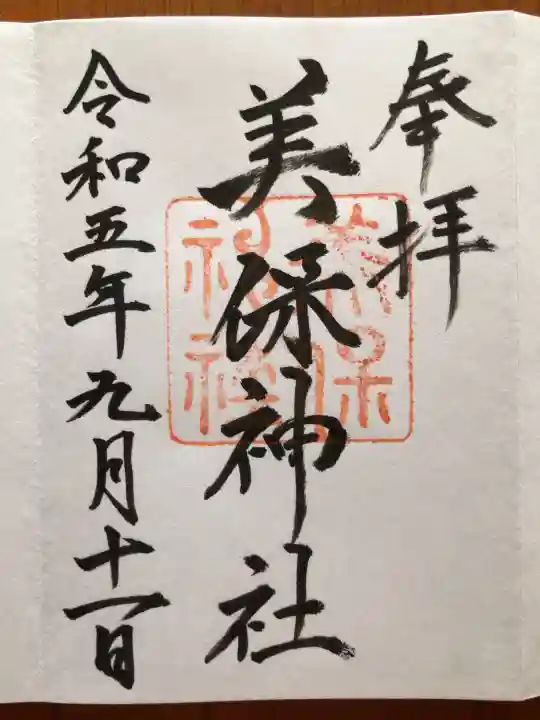 奉拝
美保神社
美保
神社
令和五年九月十一日